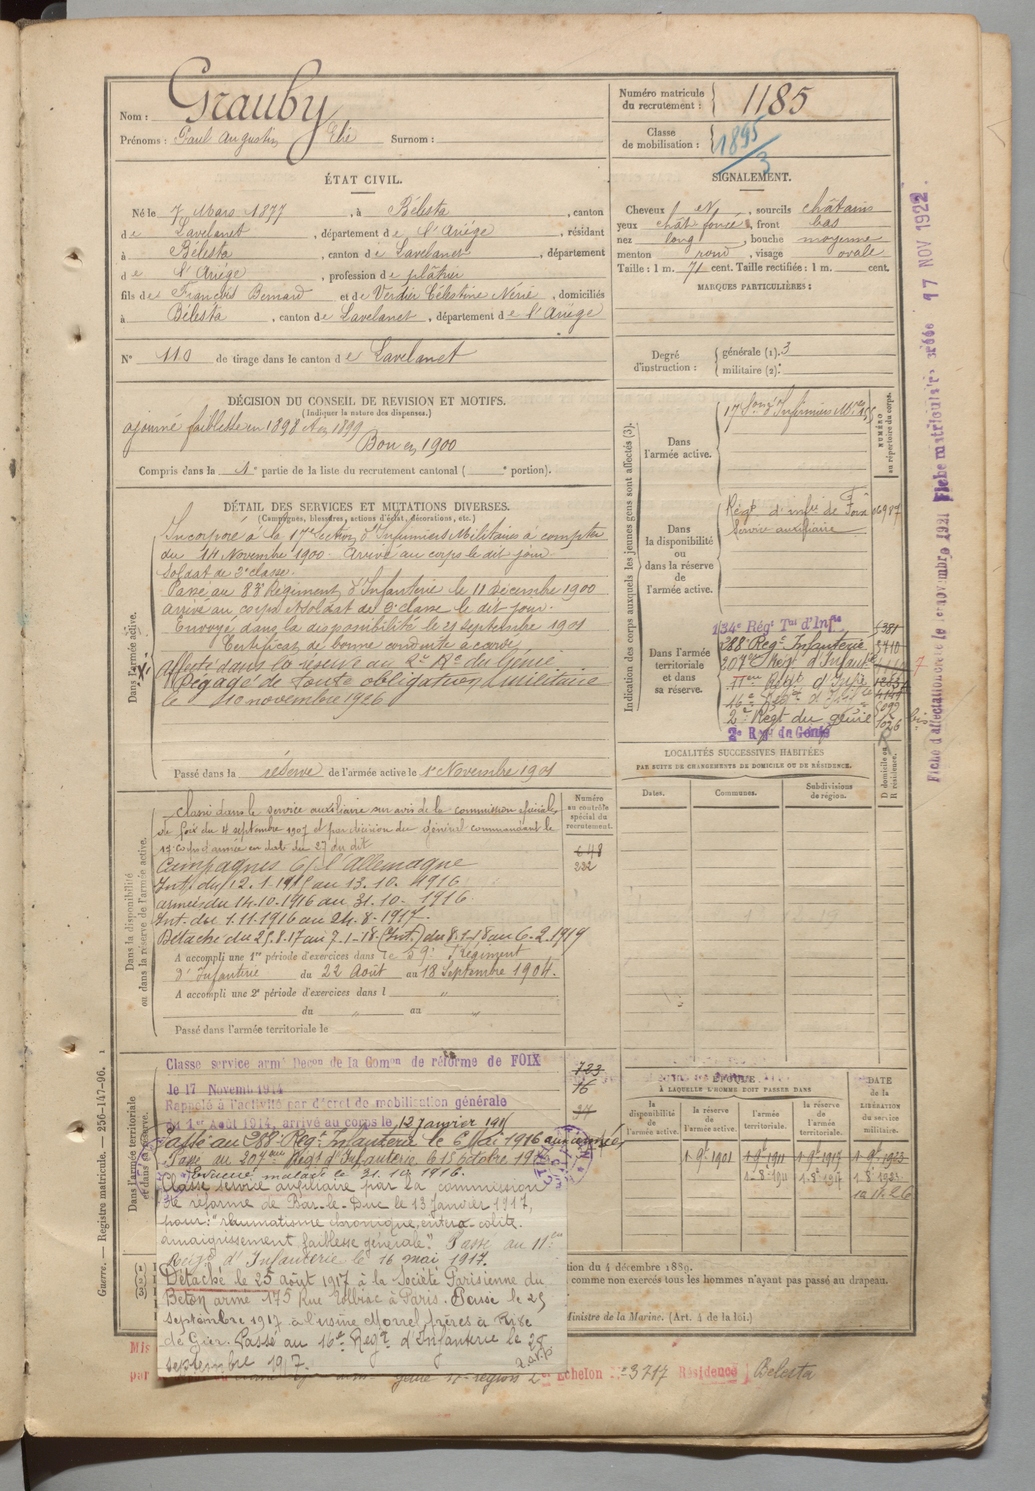 Nom : Grauby
Prénoms : Paul Augustin Elie Surnom :
Numéro matricule du recrutement : 1185
Classe de mobilisation : 1895/3
ÉTAT CIVIL.
Né le 7 Mars 1877, à Bélesta, canton
de Lavelanet, département de l'Ariège, résidant
à Bélesta, canton de Lavelanet, département
de l'Ariège, profession de plâtrier
fils de François Bernard et de Verdier Célestine Nérie, domiciliés
à Bélesta, canton de Lavelanet, département de l'Ariège
N° 110 de tirage dans le canton de Lavelanet
SIGNALEMENT.
Cheveux N, sourcils châtains
yeux chât foncé, front bas
nez long, bouche moyenne
menton rond, visage ovale
Taille : 1 m. 71 cent. Taille rectifiée : 1 m. cent.
MARQUES PARTICULIÈRES :
Degré d'instruction : générale (1). 3
militaire (2).
DÉCISION DU CONSEIL DE REVISION ET MOTIFS.
(Indiquer la nature des dispenses.)
ajourné faiblesse en 1898 et en 1899
Bon en 1900
Compris dans la 1e partie de la liste du recrutement cantonal ( portion).
DÉTAIL DES SERVICES ET MUTATIONS DIVERSES.
(Campagnes, blessures, actions d'éclat, décorations, etc.)
Dans l'armée active.
Incorporé à la 17e Section d'Infirmiers Militaires à compter
du 14 Novembre 1900. Arrivé au corps le dit jour.
Soldat de 2e classe.
Passé au 83e Régiment d'Infanterie le 11 Décembre 1900
arrivé au corps et soldat de 2e classe le dit jour.
Envoyé dans la disponibilité le 21 septembre 1901
Certificat de bonne conduite accordé
affecté dans la réserve au 2e Rt du Génie
Dégagé de toute obligation militaire
le 10 novembre 1926
Passé dans la réserve de l'armée active le 1er Novembre 1901
Indication des corps auxquels les jeunes gens sont affectés (3).
NUMÉRO au répertoire du corps.
Dans l'armée active.
17e Son d'Infirmiers Mres
Dans la disponibilité ou dans la réserve de l'armée active.
Régt d'infie de Foix 06987
Service auxiliaire
Dans l'armée territoriale et dans sa réserve.
134e Régt Tal d'Infie 381
288e Regt Infanterie 3410
207e Regt d'Infantie
11e Regt d'Infie
16e Regt d'Infie
2e Regt du génie 1026 bis
2e Rgt du Génie
LOCALITÉS SUCCESSIVES HABITÉES
PAR SUITE DE CHANGEMENTS DE DOMICILE OU DE RÉSIDENCE.
Dates. Communes. Subdivisions de région. D domicile ou R résidence.
Dans la disponibilité ou dans la réserve de l'armée active.
Numéro au contrôle spécial du recrutement.
648
232
Classé dans le service auxiliaire sur avis de la commission spéciale
de foix du 4 septembre 1907 et par décision du général commandant le
17e corps d'armée en date du 27 du dit
Campagnes C/ l'Allemagne
Int. du 12.1.1915 au 13.10.1916
armée du 14.10.1916 au 31.10.1916
Int. du 1.11.1916 au 24.8.1917.
Détaché du 25.8.17 au 7.1.18 (Int.) du 8.1.18 au 6.2.1919
A accompli une 1re période d'exercices dans le 59e Régiment
d'Infanterie du 22 Août au 18 Septembre 1904.
A accompli une 2e période d'exercices dans l "
du " au "
Passé dans l'armée territoriale le
Dans l'armée territoriale et dans sa réserve.
Classe service armé Décon de la Comon de réforme de FOIX 723
le 17 Novemb 1914 16
Rappelé à l'activité par décret de mobilisation générale
du 1er Août 1914, arrivé au corps le 12 Janvier 1915 34
Passé au 288e Regt Infanterie le 6 Mai 1916 aux armées
Passé au 207e Regt d'Infanterie le 15 octobre 1916
Evacué malade le 31.10.1916.
Classé service auxiliaire par la commission
de réforme de Bar-le-Duc le 13 janvier 1917,
pour: "rhumatisme chronique, entéro-colite.
amaigrissement faiblesse générale". Passé au 11e
Regt d'Infanterie le 16 mai 1917.
Détaché le 25 août 1917 à la Société Parisienne du
Béton armé 175 Rue Tolbiac à Paris. Passé le 25
septembre 1917 à l'usine Morrel frères à Rive
de Gier. Passé au 16e Regt d'Infanterie le 28
septembre 1917.
ÉPOQUE
À LAQUELLE L'HOMME DOIT PASSER DANS
la disponibilité de l'armée active. la réserve de l'armée active. l'armée territoriale. la réserve de l'armée territoriale.
DATE de la LIBÉRATION du service militaire.
1 9bre 1901 1 9bre 1911 1 9bre 1917 1 9bre 1923
1.8e 1911 1.8e 1917 1.8e 1923
10.11.26
tion du 4 décembre 1889.
comme non exercés tous les hommes n'ayant pas passé au drapeau.
Ministre de la Marine. (Art. 4 de la loi.)
Mis
par
génie 17e région 2e Echelon n° 3717 Résidence Bélesta
Guerre. — Registre matricule. — 256-147-96.
17 NOV 1922